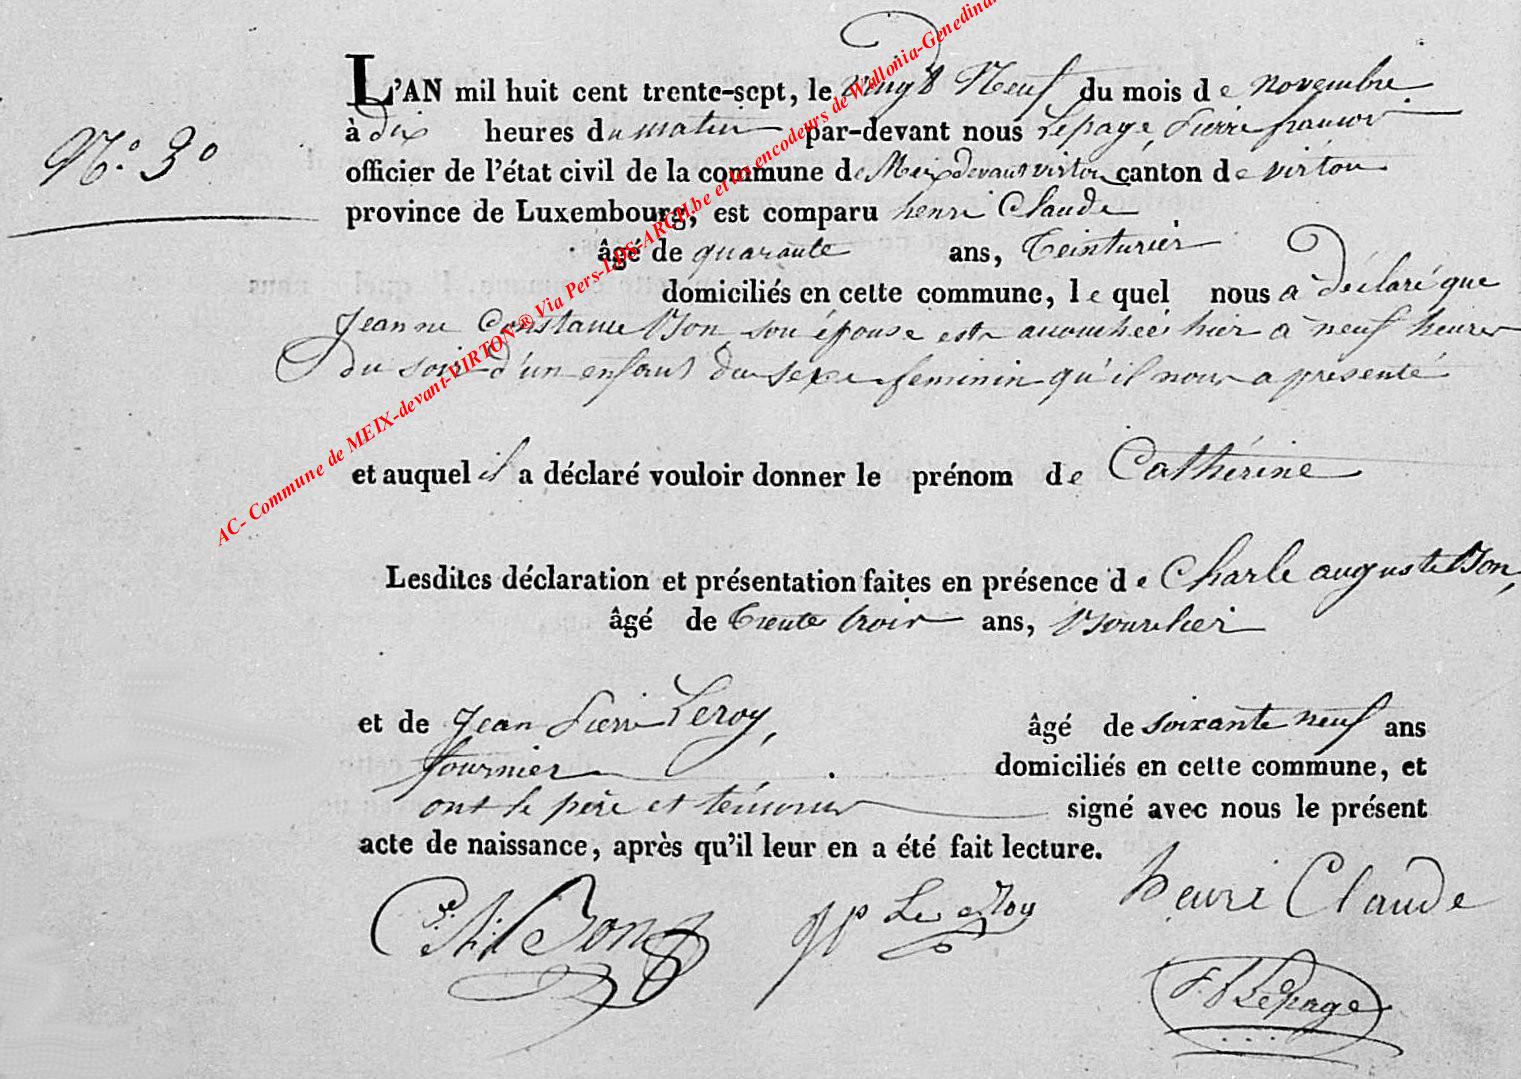 N.º 30
L'AN mil huit cent trente-sept, le vingt Neuf du mois de novembre
à dix heures du matin par-devant nous Lepage, Pierre françois
officier de l'état civil de la commune de Meix devant virton canton de virton
province de Luxembourg, est comparu henri Claude
âgé de quarante ans, Teinturier
domiciliés en cette commune, le quel nous a déclaré que
Jeanne Constance Bon son épouse est accouchée hier à neuf heures
Du soir d'un enfant du sexe feminin qu'il nous a présenté
et auquel il a déclaré vouloir donner le prénom de Cathérine
Lesdites déclaration et présentation faites en présence de Charle auguste Bon,
âgé de trente trois ans, Bourlier
et de Jean Pierre Leroy, âgé de soixante neuf ans
fournier domiciliés en cette commune, et
ont le père et témoins signé avec nous le présent
acte de naissance, après qu'il leur en a été fait lecture.
Bon JP Le Roy henri Claude
P. f Lepage
AC- Commune de MEIX-devant-VIRTON ® Via Pers-LDS-ARCH.be et les encodeurs de Wallonia-Genedinar